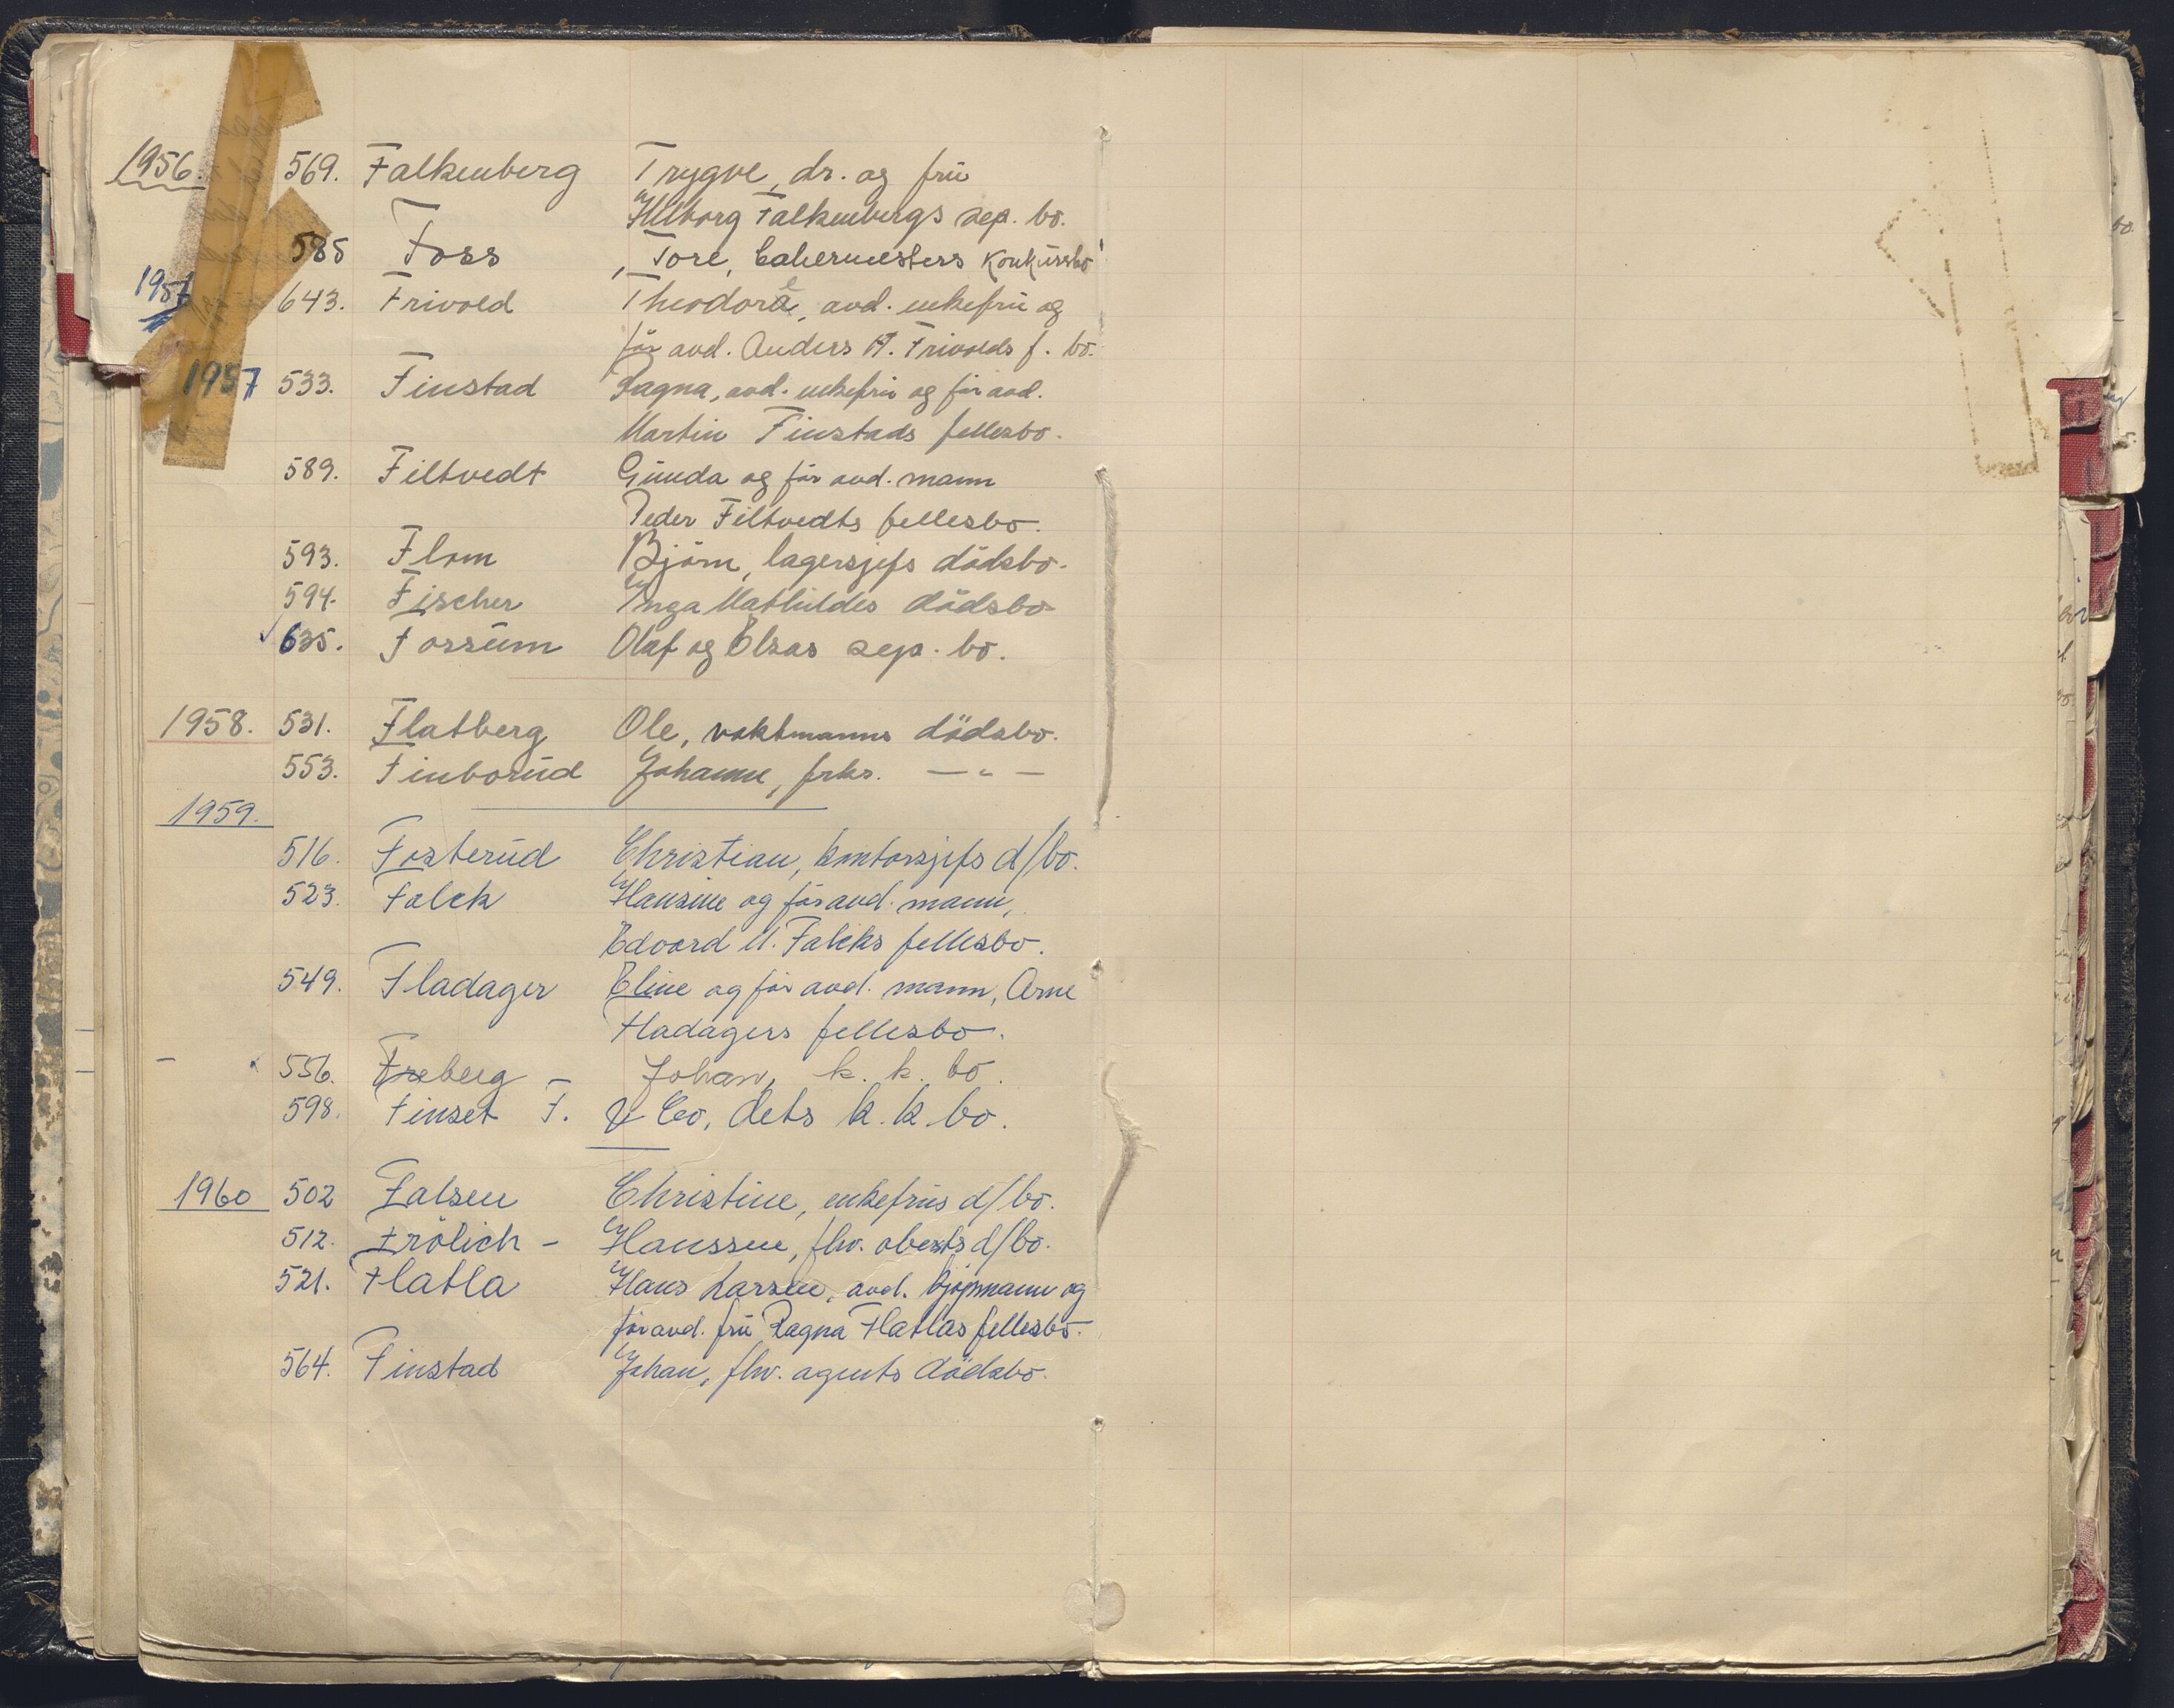 1956. 569. Falkenberg Trygve, dr. og fru
Hilborg Falkenbergs sep. bo.
585 Foss , Tore, bakermesters konkursbo
1957 643. Frivold Theodora, avd. enkefru og
för avd. Anders A. Frivolds f. bo.
1957 533. Finstad Ragna, avd. enkefru og för avd.
Martin Finstads fellesbo.
589. Filtvedt Gunda og för avd. mann
Peder Filtvedts fellesbo.
593. Flom Björn, lagersjefs dödsbo.
594. Fischer Inga Mathildes dödsbo
635. Fossum Olaf og Elsas sep. bo.
1958. 531. Flatberg Ole, vaktmanns dödsbo.
553. Finborud Johanne, frks. — " —
1959.
516. Fosterud Christian, kontorsjefs d/bo.
523. Falck Hansine og för avd. mann,
Edvard M. Falcks fellesbo.
549. Fladager Eline og för avd. mann, Arne
Fladagers fellesbo.
- 556. Freberg - Johan, k. k. bo.
598. Finset F. & Co, dets k. k. bo.
1960 502 Falsen Christine, enkefrus d/bo.
512. Frölich - Hanssen, fhv. obersts d/bo.
521. Flatla Hans Larsen, avd. kjöpmann og
för avd. fru Ragna Flatlas fellesbo.
564. Finstad Johan, fhv. agents dödsbo.